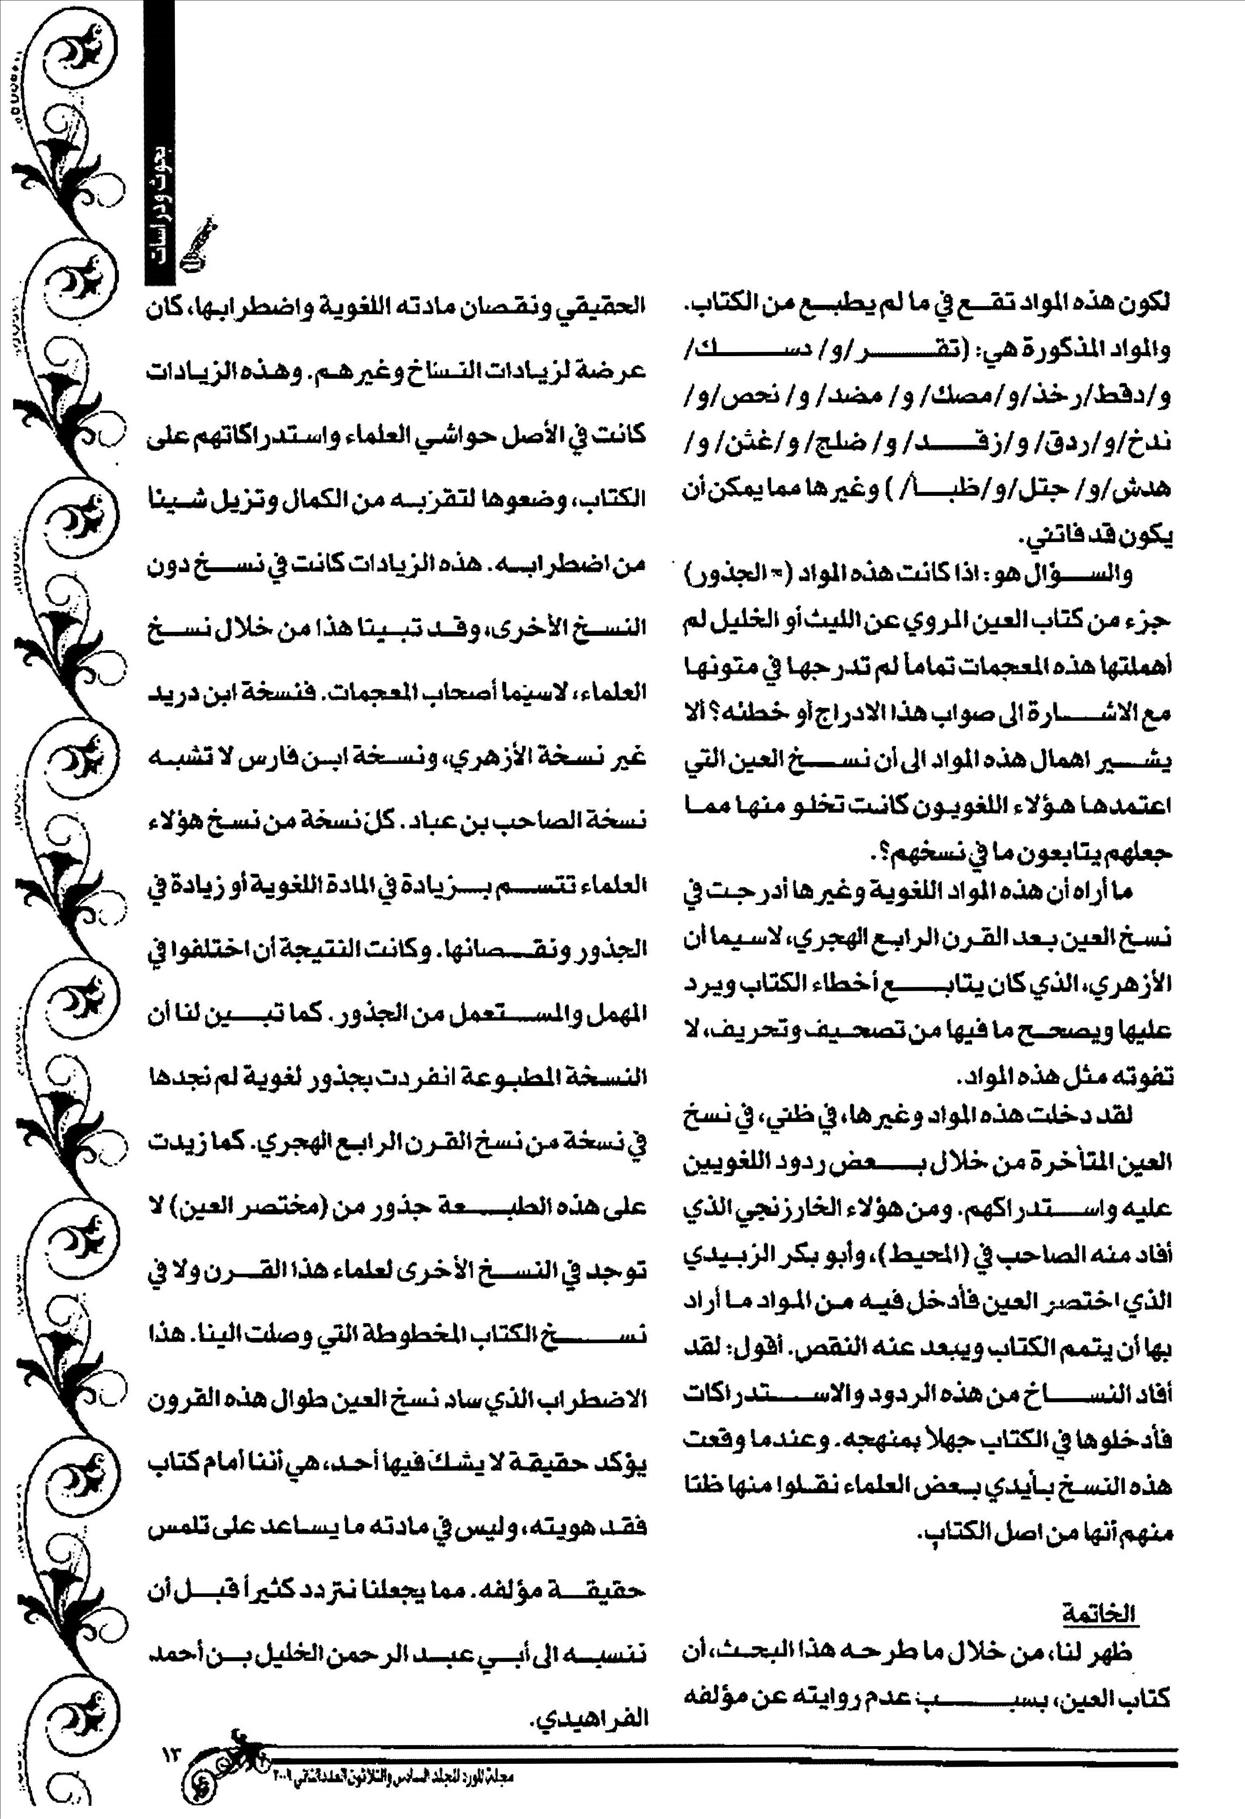 بحوث ودراسات
لكون هذه المواد تقع في ما لم يطبع من الكتاب.
والمواد المذكورة هي: (تقر/و/ دسك/
و/دقط/رخذ/و/مصك/ و/ مضد/ و/ نحص/و/
ندخ/و/ردق/ و/زقد/ و/ ضلج/ و/غثن/ و/
هدش/و/ جتل/و/ظبأ/ ) وغيرها مما يمكن أن
يكون قد فاتني.
والسؤال هو: اذا كانت هذه المواد (= الجذور)
جزء من كتاب العين المروي عن الليث أو الخليل لم
أهملتها هذه المعجمات تماماً لم تدرجها في متونها
مع الاشارة الى صواب هذا الادراج أو خطئه؟ ألا
يشير اهمال هذه المواد الى أن نسخ العين التي
اعتمدها هؤلاء اللغويون كانت تخلو منها مما
جعلهم يتابعون ما في نسخهم؟.
ما أراه أن هذه المواد اللغوية وغيرها أدرجت في
نسخ العين بعد القرن الرابع الهجري، لاسيما أن
الأزهري، الذي كان يتابع أخطاء الكتاب ويرد
عليها ويصحح ما فيها من تصحيف وتحريف، لا
تفوته مثل هذه المواد.
لقد دخلت هذه المواد وغيرها، في ظني، في نسخ
العين المتأخرة من خلال بعض ردود اللغويين
عليه واستدراكهم. ومن هؤلاء الخارزنجي الذي
أفاد منه الصاحب في (المحيط)، وأبو بكر الزبيدي
الذي اختصر العين فأدخل فيه من المواد ما أراد
بها أن يتمم الكتاب ويبعد عنه النقص. أقول: لقد
أفاد النساخ من هذه الردود والاستدراكات
فأدخلوها في الكتاب جهلاً بمنهجه. وعندما وقعت
هذه النسخ بأيدي بعض العلماء نقلوا منها ظناً
منهم أنها من اصل الكتاب.
الخاتمة
ظهر لنا، من خلال ما طرحه هذا البحث، أن
كتاب العين، بسبب عدم روايته عن مؤلفه
الحقيقي ونقصان مادته اللغوية واضطرابها، كان
عرضة لزيادات النساخ وغيرهم. وهذه الزيادات
كانت في الأصل حواشي العلماء واستدراكاتهم على
الكتاب، وضعوها لتقربه من الكمال وتزيل شيئاً
من اضطرابه. هذه الزيادات كانت في نسخ دون
النسخ الأخرى، وقد تبينا هذا من خلال نسخ
العلماء، لاسيّما أصحاب المعجمات. فنسخة ابن دريد
غير نسخة الأزهري، ونسخة ابن فارس لا تشبه
نسخة الصاحب بن عباد. كلّ نسخة من نسخ هؤلاء
العلماء تتسم بزيادة في المادة اللغوية أو زيادة في
الجذور ونقصانها. وكانت النتيجة أن اختلفوا في
المهمل والمستعمل من الجذور. كما تبين لنا أن
النسخة المطبوعة انفردت بجذور لغوية لم نجدها
في نسخة من نسخ القرن الرابع الهجري. كما زيدت
على هذه الطبعة جذور من (مختصر العين) لا
توجد في النسخ الأخرى لعلماء هذا القرن ولا في
نسخ الكتاب المخطوطة التي وصلت الينا. هذا
الاضطراب الذي ساد نسخ العين طوال هذه القرون
يؤكد حقيقة لا يشكّ فيها أحد، هي أننا أمام كتاب
فقد هويته، وليس في مادته ما يساعد على تلمس
حقيقة مؤلفه. مما يجعلنا نتردد كثيراً قبل أن
ننسبه الى أبي عبد الرحمن الخليل بن أحمد
الفراهيدي.
مجلة المورد المجلد السادس والثلاثون العدد الثاني ٢٠٠٩
١٣